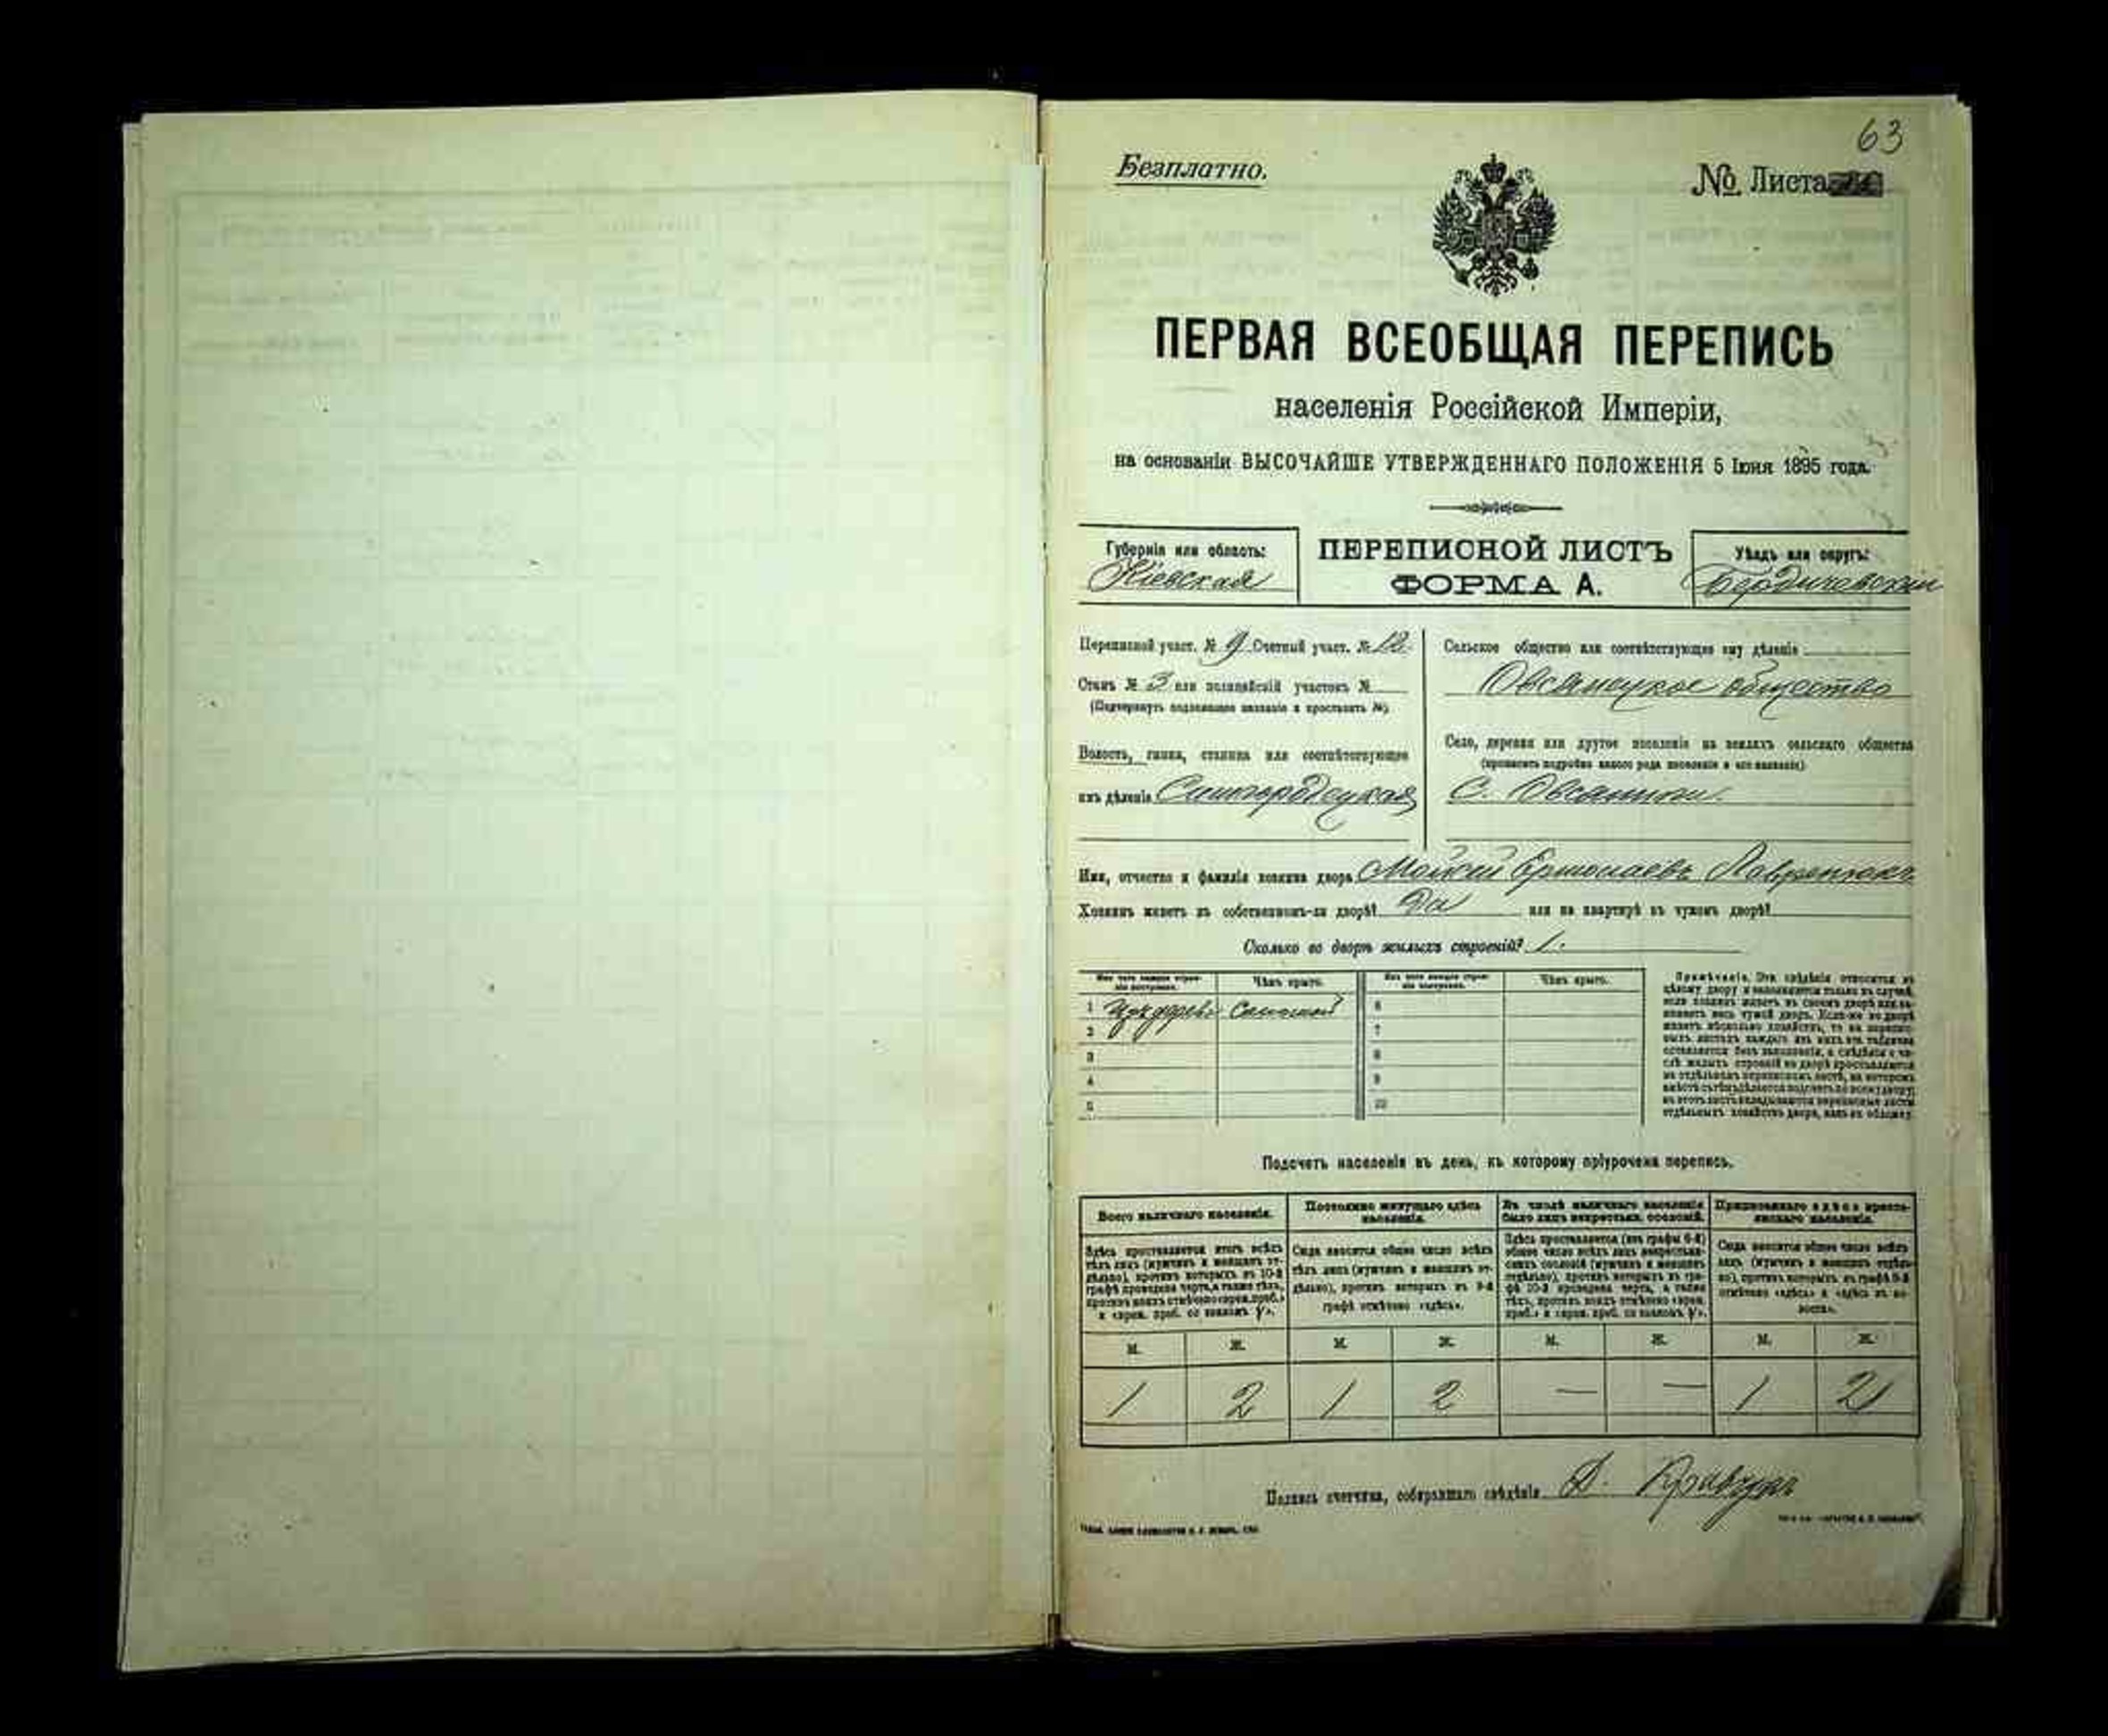 63
Безплатно.
№ Листа
ПЕРВАЯ ВСЕОБЩАЯ ПЕРЕПИСЬ
населенія Россійской Имперіи,
на основаніи ВЫСОЧАЙШЕ УТВЕРЖДЕННАГО ПОЛОЖЕНІЯ 5 Іюня 1895 года.
Губернія или область:
Кіевская
ПЕРЕПИСНОЙ ЛИСТЪ
ФОРМА А.
Уѣздъ или округъ:
Бердичевскій
Переписной участ. № 9 Счетный участ. № 12
Станъ № 3 или полицейскій участокъ №
(Подчеркнуть подлежащее названіе и проставить №)
Волость, гмина, станица или соотвѣтствующее
имъ дѣленіе
Сельское общество или соотвѣтствующее ему дѣленіе
Овсянецкое общество
Село, деревня или другое поселеніе на земляхъ сельскаго общества
(прописать подробно какого рода поселеніе и его названіе)
С. Овсяники.
Имя, отчество и фамилія хозяина двора Мойсей Ермолаевъ Лавренюкъ
Хозяинъ живетъ въ собственномъ-ли дворѣ? Да или на квартирѣ въ чужомъ дворѣ?
Сколько во дворѣ жилыхъ строеній? 1.
Изъ чего каждое строеніе построено.
Чѣмъ крыто.
Изъ чего каждое строеніе построено.
Чѣмъ крыто.
1 Изъ дерева Соломой 6
2 7
3 8
4 9
5 10
Примѣчаніе. Эти свѣдѣнія относятся къ
цѣлому двору и заполняются только въ случаѣ,
если хозяинъ живетъ въ своемъ дворѣ или за-
нимаетъ весь чужой дворъ. Если-же во дворѣ
живетъ нѣсколько хозяйствъ, то на перепис-
ныхъ листахъ каждаго изъ нихъ эта табличка
оставляется безъ заполненія, а свѣдѣнія о чи-
слѣ жилыхъ строеній во дворѣ проставляются
на отдѣльномъ переписномъ листѣ, на которомъ
вмѣстѣ съ тѣмъ дѣлается подсчетъ по всему двору;
въ этотъ листъ вкладываются переписные листы
отдѣльныхъ хозяйствъ двора, какъ въ обложку.
Подсчетъ населенія въ день, къ которому пріурочена перепись.
Всего наличнаго населенія.
Постоянно живущаго здѣсь населенія.
Въ числѣ наличнаго населенія было лицъ некрестьян. сословій.
Приписаннаго здѣсь крестьянскаго населенія.
Здѣсь проставляется итогъ всѣхъ
тѣхъ лицъ (мужчинъ и женщинъ от-
дѣльно), противъ которыхъ въ 10-й
графѣ проведена черта, а также тѣхъ,
противъ коихъ отмѣчено «врем. преб.»
и «врем. преб. со знакомъ V».
Сюда вносится общее число всѣхъ
тѣхъ лицъ (мужчинъ и женщинъ от-
дѣльно), противъ которыхъ въ 9-й
графѣ отмѣчено «здѣсь».
Здѣсь проставляется (изъ графы 6-й)
общее число всѣхъ лицъ некрестьян-
скихъ сословій (мужчинъ и женщинъ
отдѣльно), противъ которыхъ въ гра-
фѣ 10-й проведена черта, а также
тѣхъ, противъ коихъ отмѣчено «врем.
преб.» и «врем. преб. со знакомъ V».
Сюда вносится общее число всѣхъ
лицъ (мужчинъ и женщинъ отдѣль-
но), противъ которыхъ въ графѣ 8-й
отмѣчено «здѣсь» и «здѣсь въ во-
лости».
М. Ж. М. Ж. М. Ж. М. Ж.
1 2 1 2 — — 1 2
Подпись счетчика, собиравшаго свѣдѣнія